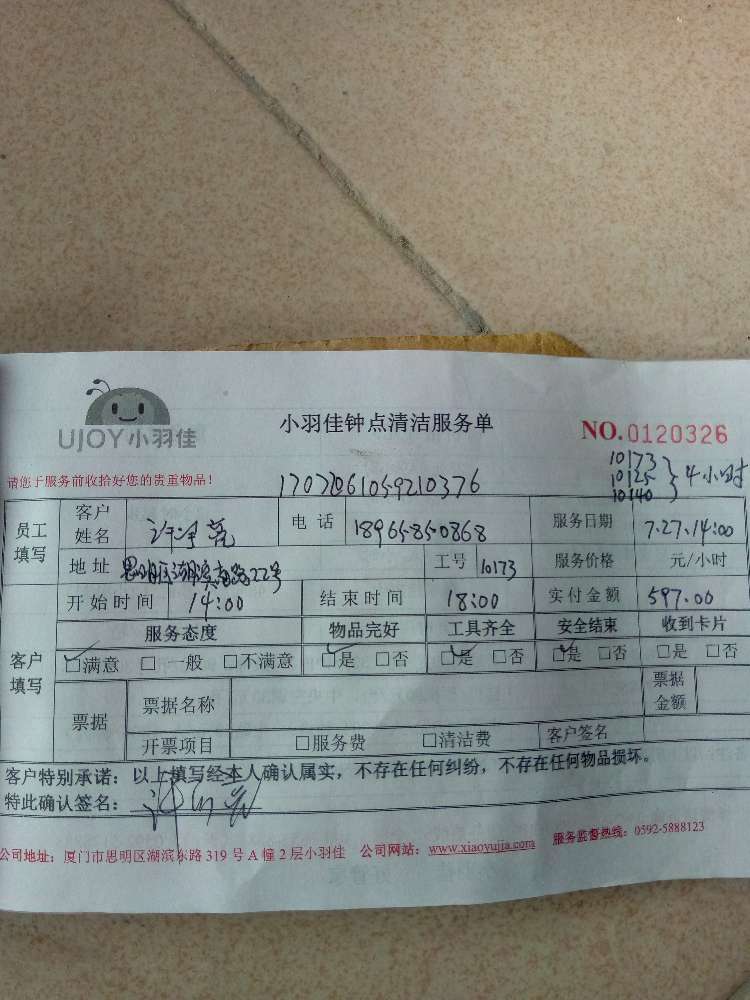 UJOY小羽佳
小羽佳钟点清洁服务单
NO.0120326
请您于服务前收拾好您的贵重物品!
10173
10125
10140
4小时
员工填写
客户姓名
电话 18965850868
服务日期 7.27.14:00
地址 思明区湖滨南路22号
工号 10173
服务价格 元/小时
客户填写
开始时间 14:00
结束时间 18:00
实付金额 597.00
服务态度 物品完好 工具齐全 安全结束 收到卡片
□满意 □一般 □不满意 □是 □否 □是 □否 □是 □否 □是 □否
票据
票据名称
票据金额
开票项目 □服务费 □清洁费 客户签名
客户特别承诺:以上填写经本人确认属实,不存在任何纠纷,不存在任何物品损坏。
特此确认签名:
公司地址:厦门市思明区湖滨东路319号A幢2层小羽佳 公司网站:www.xiaoyujia.com 服务监督热线:0592-5888123